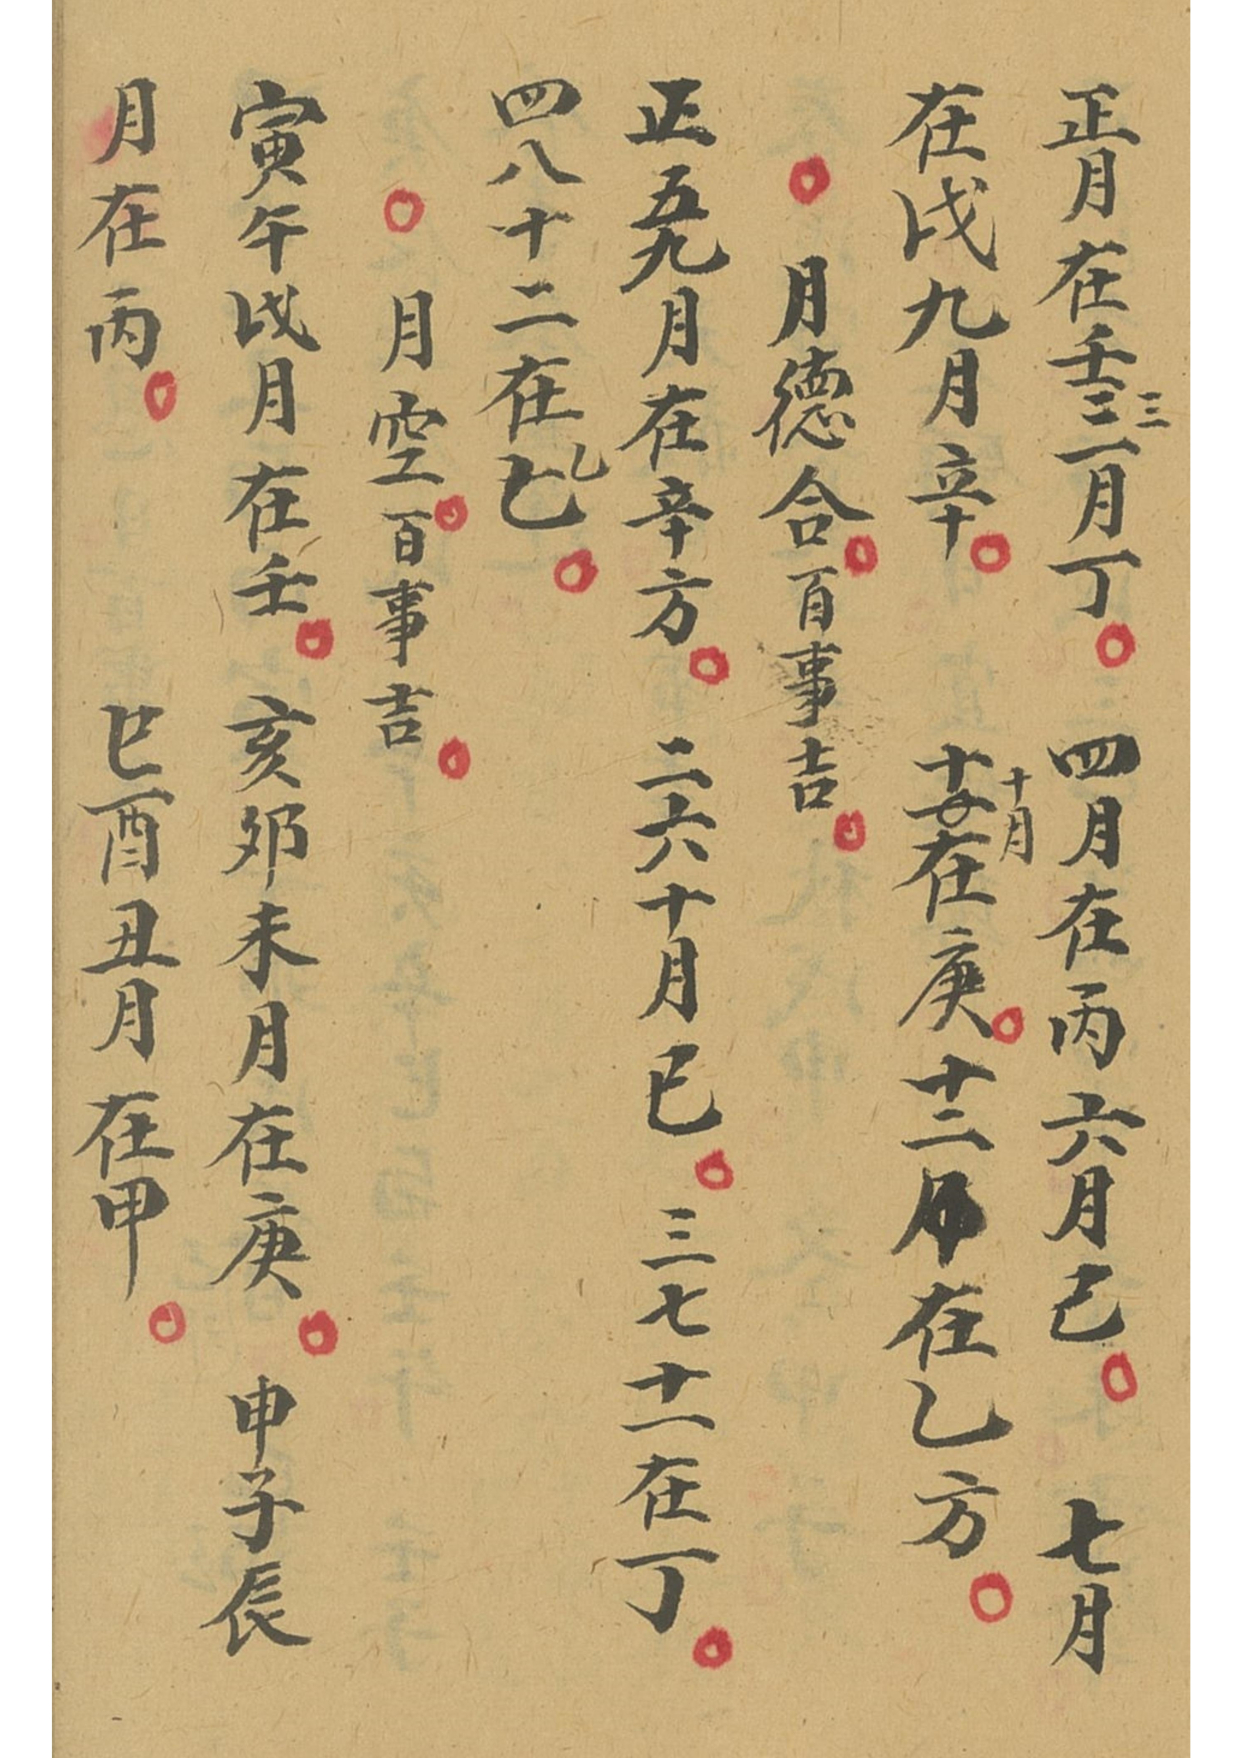 正月在壬三二月丁三四月在丙六月己七月
在戊九月辛十月在庚十二月在乙方
月德合百事吉
正五九月在辛方二六十月己三七十一在丁
四八十二在乙
月空百事吉
寅午戌月在壬亥卯未月在庚申子辰
月在丙巳酉丑月在甲